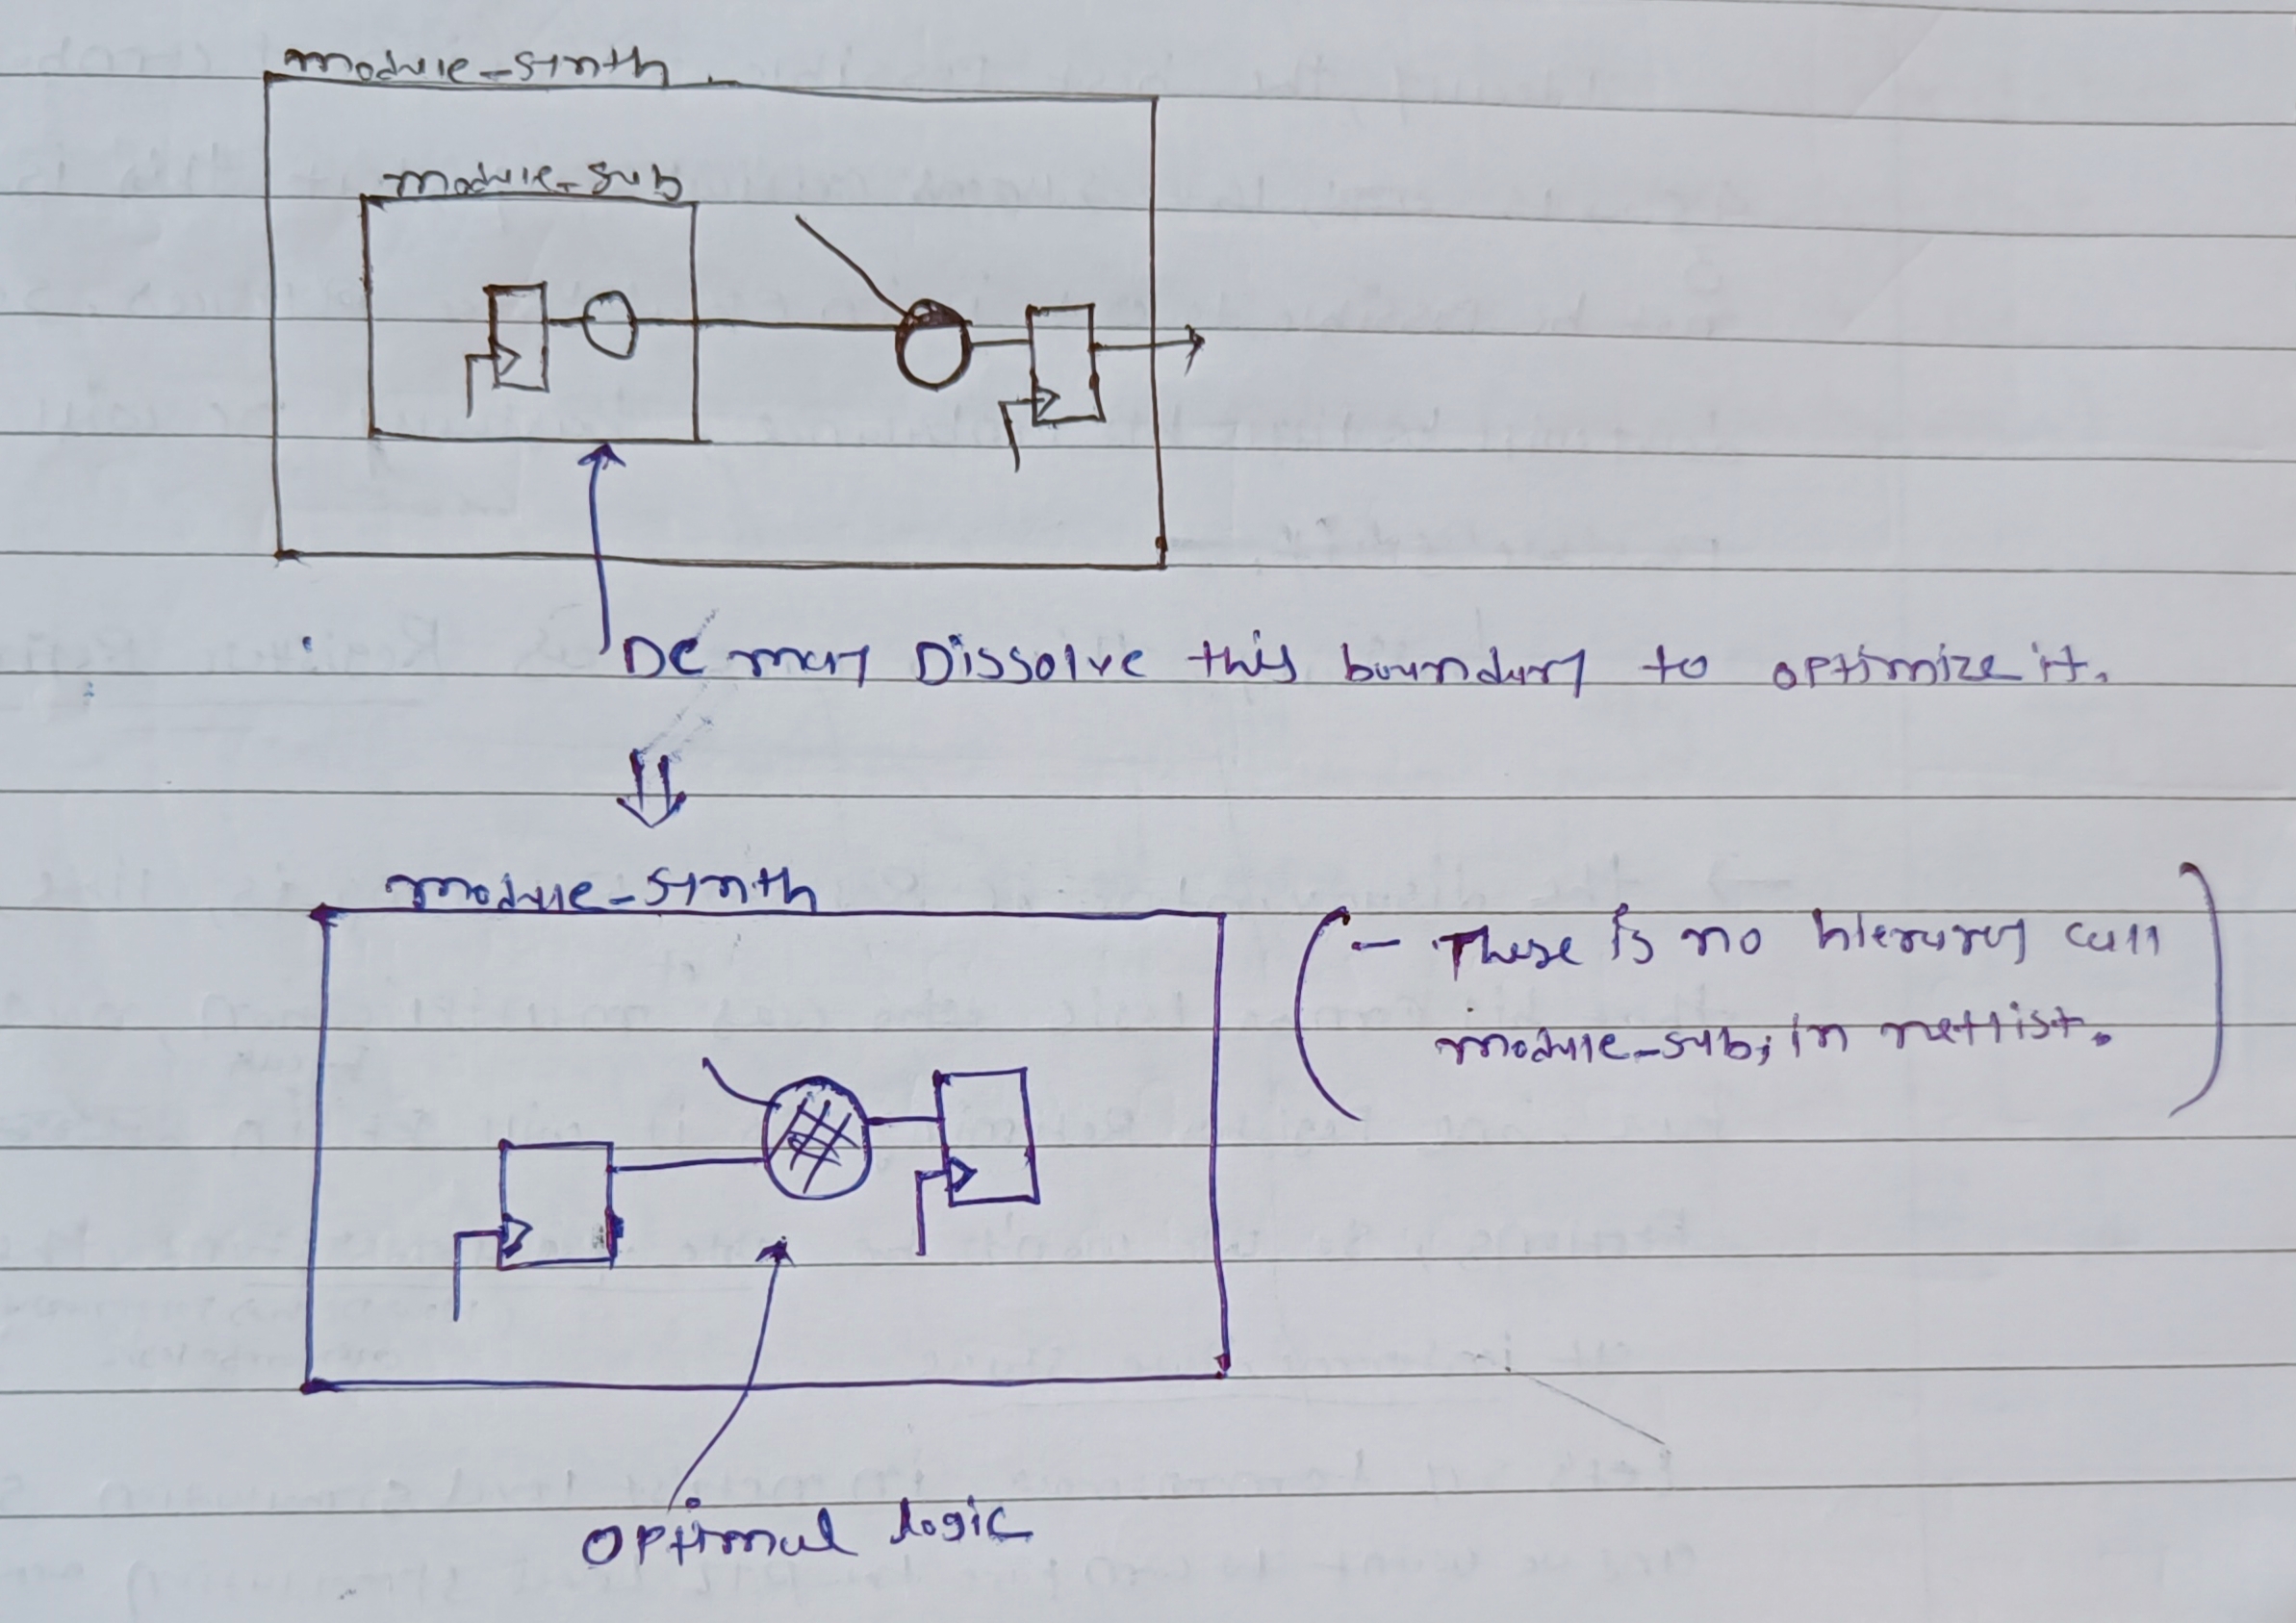 module_synth
module_sub
DC may Dissolve this boundary to optimize it.
module_synth
- There is no hierarcy call
module_sub, in netlist.
optimal logic